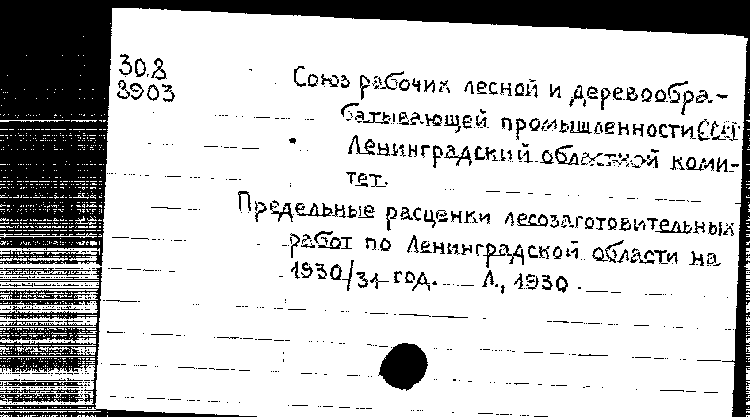 30.8
8903
Союз рабочих лесной и деревообра-
батывающей промышленности СССР
Ленинградский областной коми-
тет.
Предельные расценки лесозаготовительных
работ по Ленинградской области на
1930/31 год. — Л., 1930.